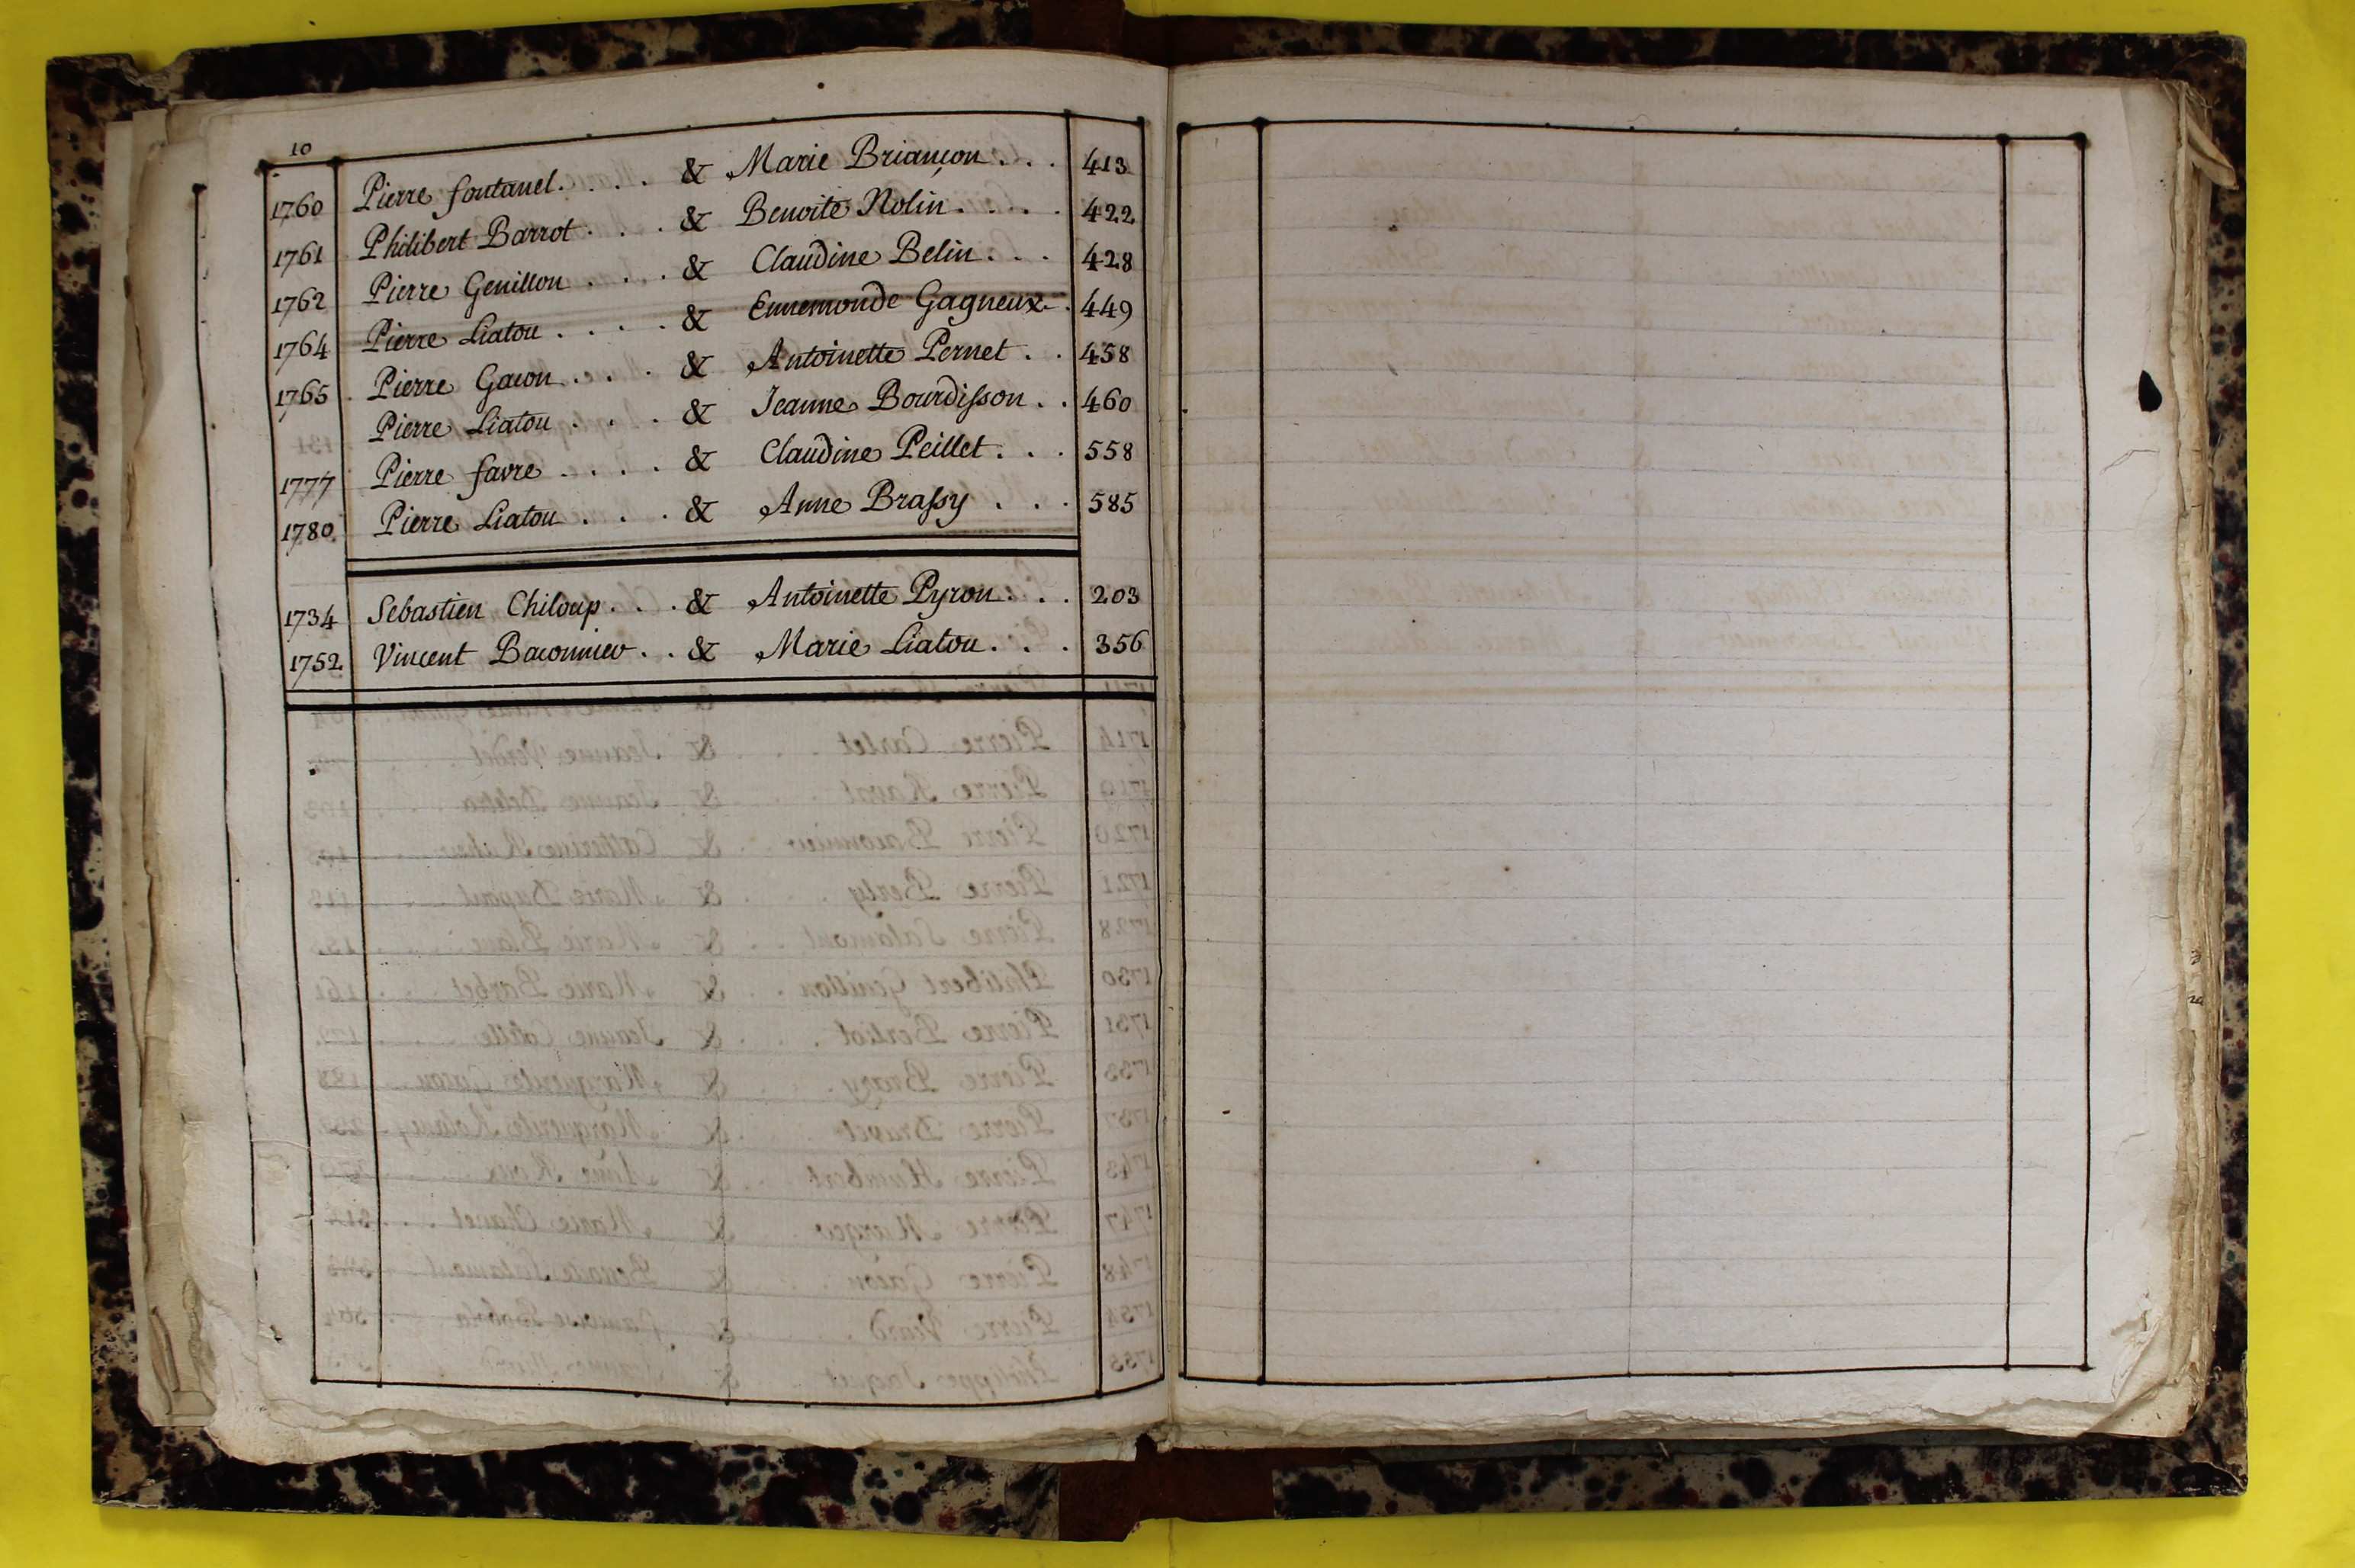 10
1760 Pierre fontanel. . . . & Marie Briançon . . . 413
1761 Philibert Barrot . . . & Benoite Nolin . . . . 422
1762 Pierre Genillon . . . . & Claudine Belin . . . 428
1764 Pierre Liatou . . . . & Ennemonde Gagneux . 449
1765 Pierre Gacon . . . . & Antoinette Pernet . . 458
Pierre Liatou . . . . & Jeanne Bourdisson . . 460
1777 Pierre favre . . . . & Claudine Peillet . . . 558
1780 Pierre Liatou . . . . & Anne Brassy . . . 585
1734 Sebastien Chiloup . . . & Antoinette Pyron . . . 203
1752 Vincent Baconnier . . & Marie Liatou . . . 356